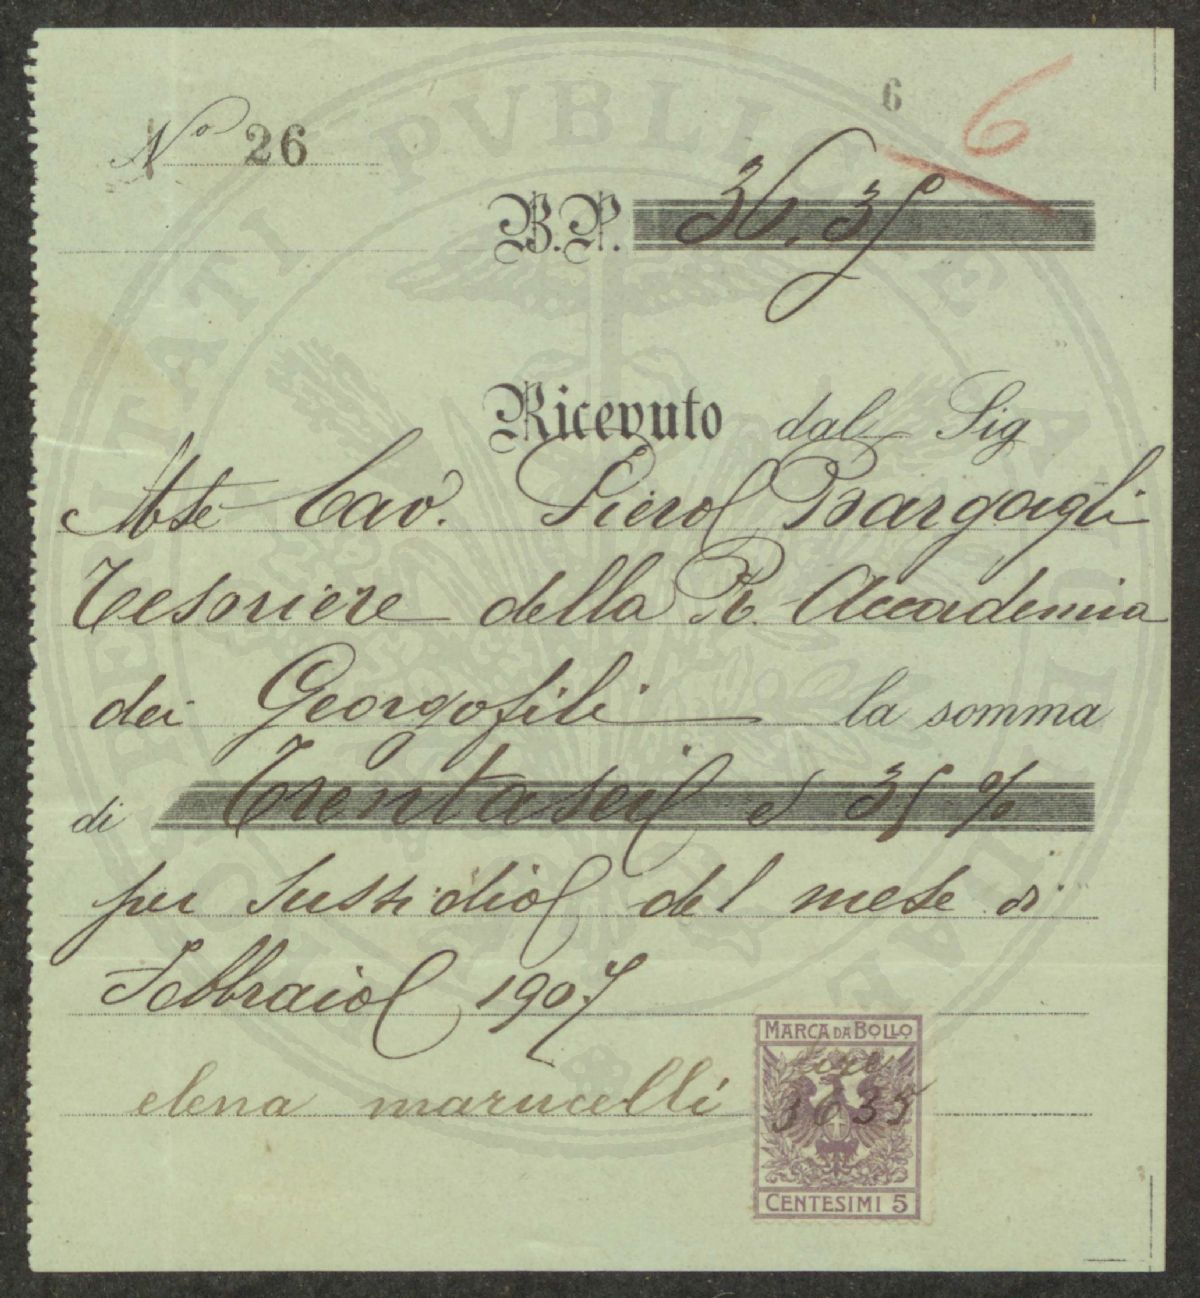 6
6
No 26
B.P. 36.35
Ricevuto dal Sig
Mse Cav. Piero Bargagli
Tesoriere della R. Accademia
dei Georgofili la somma
di Trentasei e 35 %
per Sussidio del mese di
Febbraio 1907
MARCA DA BOLLO
Lire
36 35
elena marucelli
CENTESIMI 5